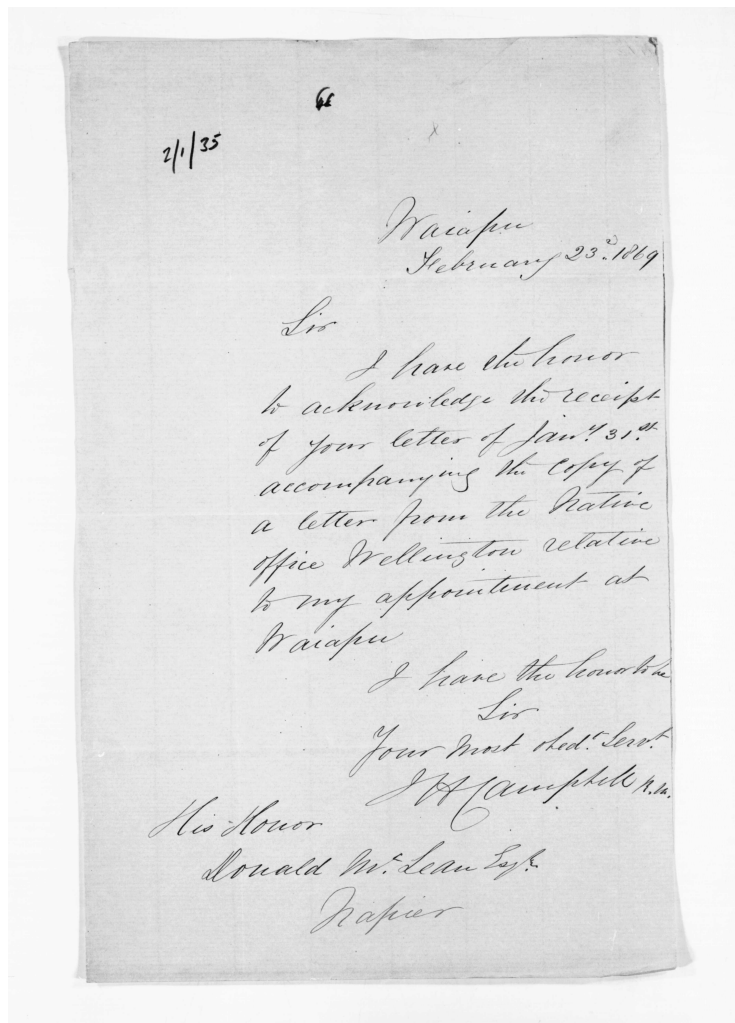 2/1/35
Waiapu
February 23d. 1869
Sir
I have the honor
to acknowledge the receipt
of your letter of Jany. 31st.
accompanying the copy of
a letter from the Native
office Wellington relative
to my appointment at
Waiapu
I have the honor to be
Sir
Your most obedt. Servt.
J H Campbell R.M.
His Honor
Donald McLean Esqr.
Napier